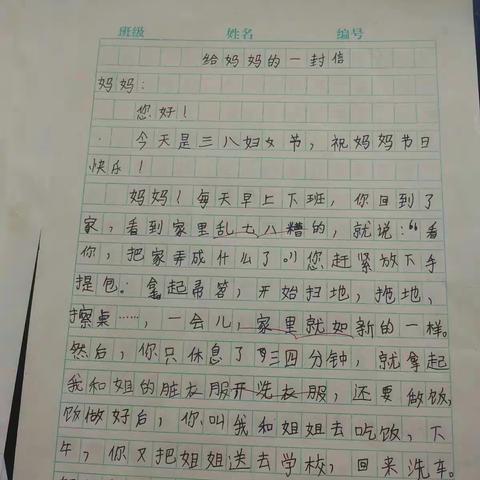 班级 姓名 编号
给妈妈的一封信
妈妈：
您好！
今天是三八妇女节，祝妈妈节日
快乐！
妈妈！每天早上下班，你回到了
家，看到家里乱七八糟的，就说：“看
你，把家弄成什么了。”您赶紧放下手
提包。拿起扫帚，开始扫地，拖地，
擦桌……，一会儿，家里就如新的一样。
然后，你只休息了三四分钟，就拿起
我和姐的脏衣服开洗衣服，还要做饭，
饭做好后，你叫我和姐姐去吃饭，下
午，你又把姐姐送去学校，回来洗车。